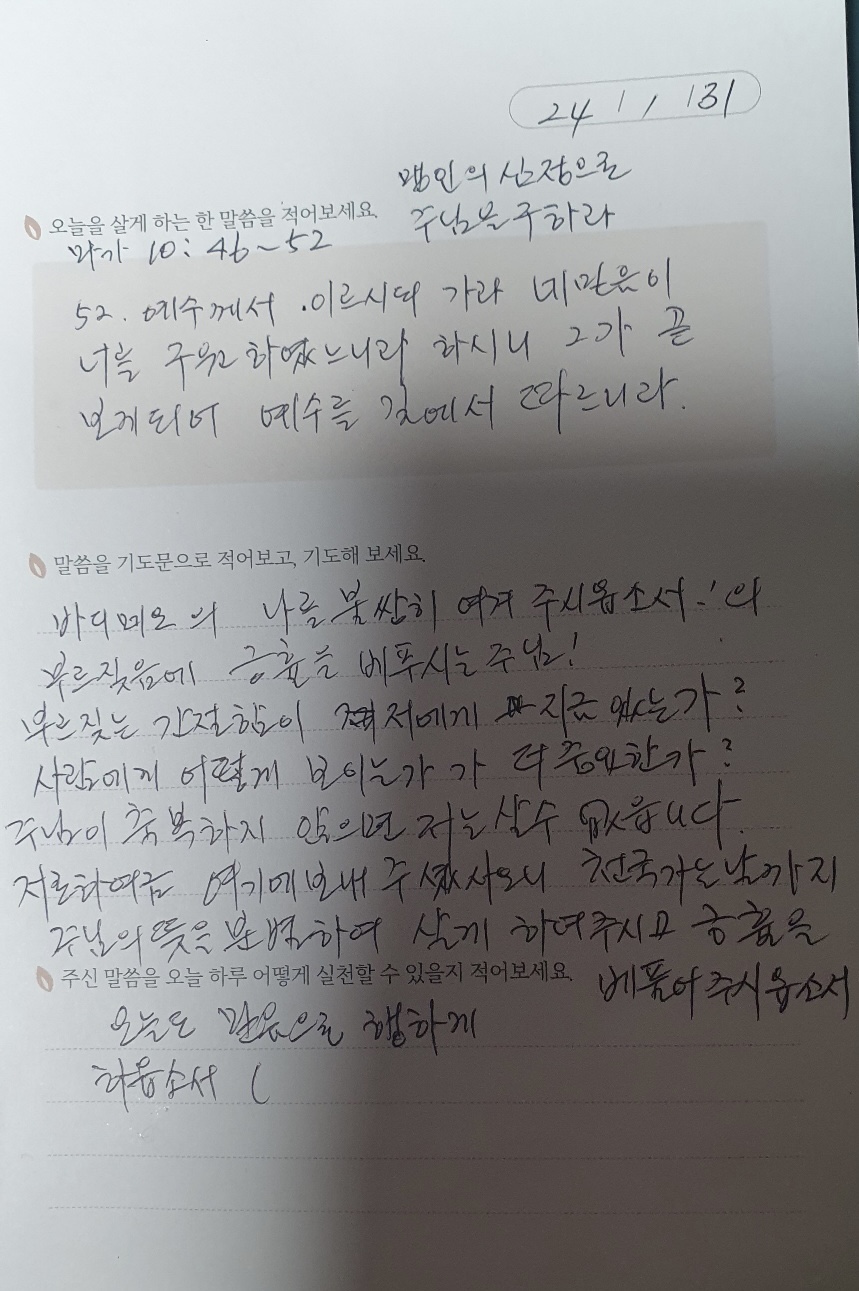 24 / 1 / 31
맹인의 심정으로
오늘을 살게 하는 한 말씀을 적어보세요.
주님을 구하라
마가 10: 46~52
52. 예수께서 이르시되 가라 네 믿음이
너를 구원하였느니라 하시니 그가 곧
보게되어 예수를 길에서 따르니라.
말씀을 기도문으로 적어보고, 기도해 보세요.
바디메오의 나를 불쌍히 여겨 주시옵소서-'의
부르짖음에 긍휼을 베푸시는 주님!
부르짖는 간절함이 저에게 지금 있는가?
사람에게 어떻게 보이는가 가 더 중요한가?
주님이 축복하지 않으면 저는 살수 없읍니다.
저로하여금 여기에 보내 주셨사오니 천국가는 날까지
주님의 뜻을 분별하여 살게 하여주시고 긍휼을
주신 말씀을 오늘 하루 어떻게 실천할 수 있을지 적어보세요.
베풀어 주시옵소서
오늘도 믿음으로 행하게
하옵소서 (